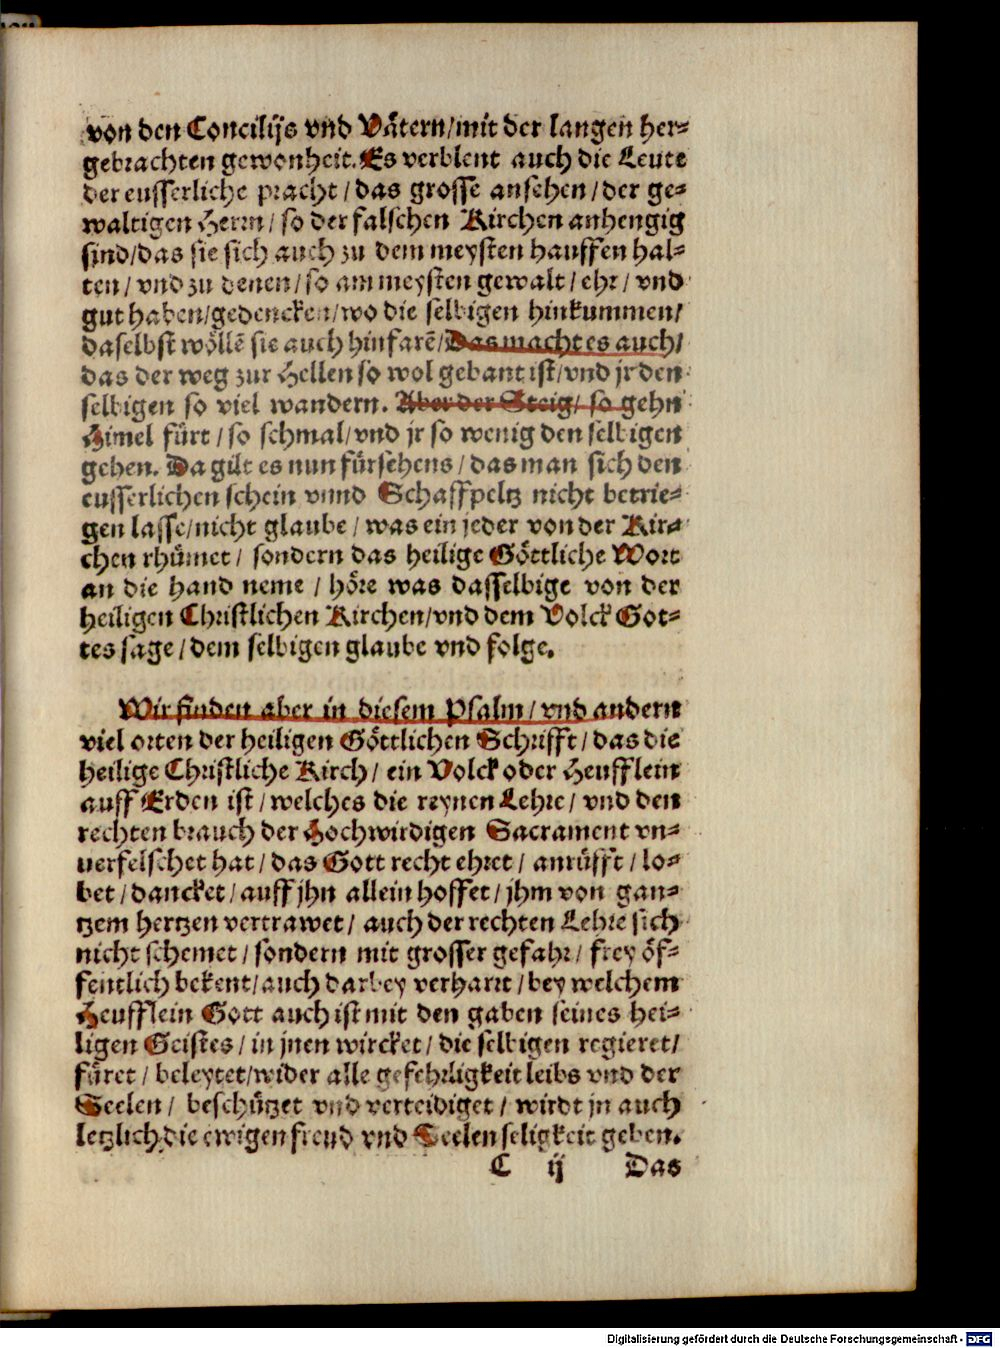 von den Concilijs vnd Vätern/mit der langen her⸗
gebrachten gewonheit. Es verblent auch die Leute
der eusserliche pracht / das grosse ansehen / der ge⸗
waltigen Herrn / so der falschen Kirchen anhengig
sind/das sie sich auch zu dem meysten hauffen hal⸗
ten / vnd zu denen / so am meysten gewalt / ehr / vnd
gut haben/gedencken/wo die selbigen hinkummen/
daselbst wöllẽ sie auch hinfarẽ/Das macht es auch/
das der weg zur Hellen so wol gebant ist/vnd jr den
selbigen so viel wandern. Aber der Steig/ so gehn
Himel fürt / so schmal/vnd jr so wenig den selbigen
gehen. Da gilt es nun fürsehens / das man sich den
eusserlichen schein vnnd Schaffpeltz nicht betrie⸗
gen lasse/nicht glaube / was ein jeder von der Kir⸗
chen rhümet / sondern das heilige Göttliche Wort
an die hand neme / höre was dasselbige von der
heiligen Christlichen Kirchen/vnd dem Volck Got⸗
tes sage / dem selbigen glaube vnd folge.
Wir finden aber in diesem Psalm / vnd andern
viel orten der heiligen Göttlichen Schrifft / das die
heilige Christliche Kirch / ein Volck oder Heufflein
auff Erden ist / welches die reynen Lehre / vnd den
rechten brauch der Hochwirdigen Sacrament vn⸗
uerfelschet hat / das Gott recht ehret / anrüfft / lo⸗
bet / dancket / auff jhn allein hoffet / jhm von gan⸗
tzem hertzen vertrawet / auch der rechten Lehre sich
nicht schemet / sondern mit grosser gefahr / frey öf⸗
fentlich bekent/auch darbey verharrt / bey welchem
Heufflein Gott auch ist mit den gaben seines hei⸗
ligen Geistes / in jnen wircket / die selbigen regieret/
füret / beleytet/wider alle gefehrligkeit leibs vnd der
Seelen / beschützet vnd verteidiget / wirdt jn auch
letzlich die ewigen freud vnd Seelen seligkeit geben.
C ij Das
Digitalisierung gefördert durch die Deutsche Forschungsgemeinschaft - DFG